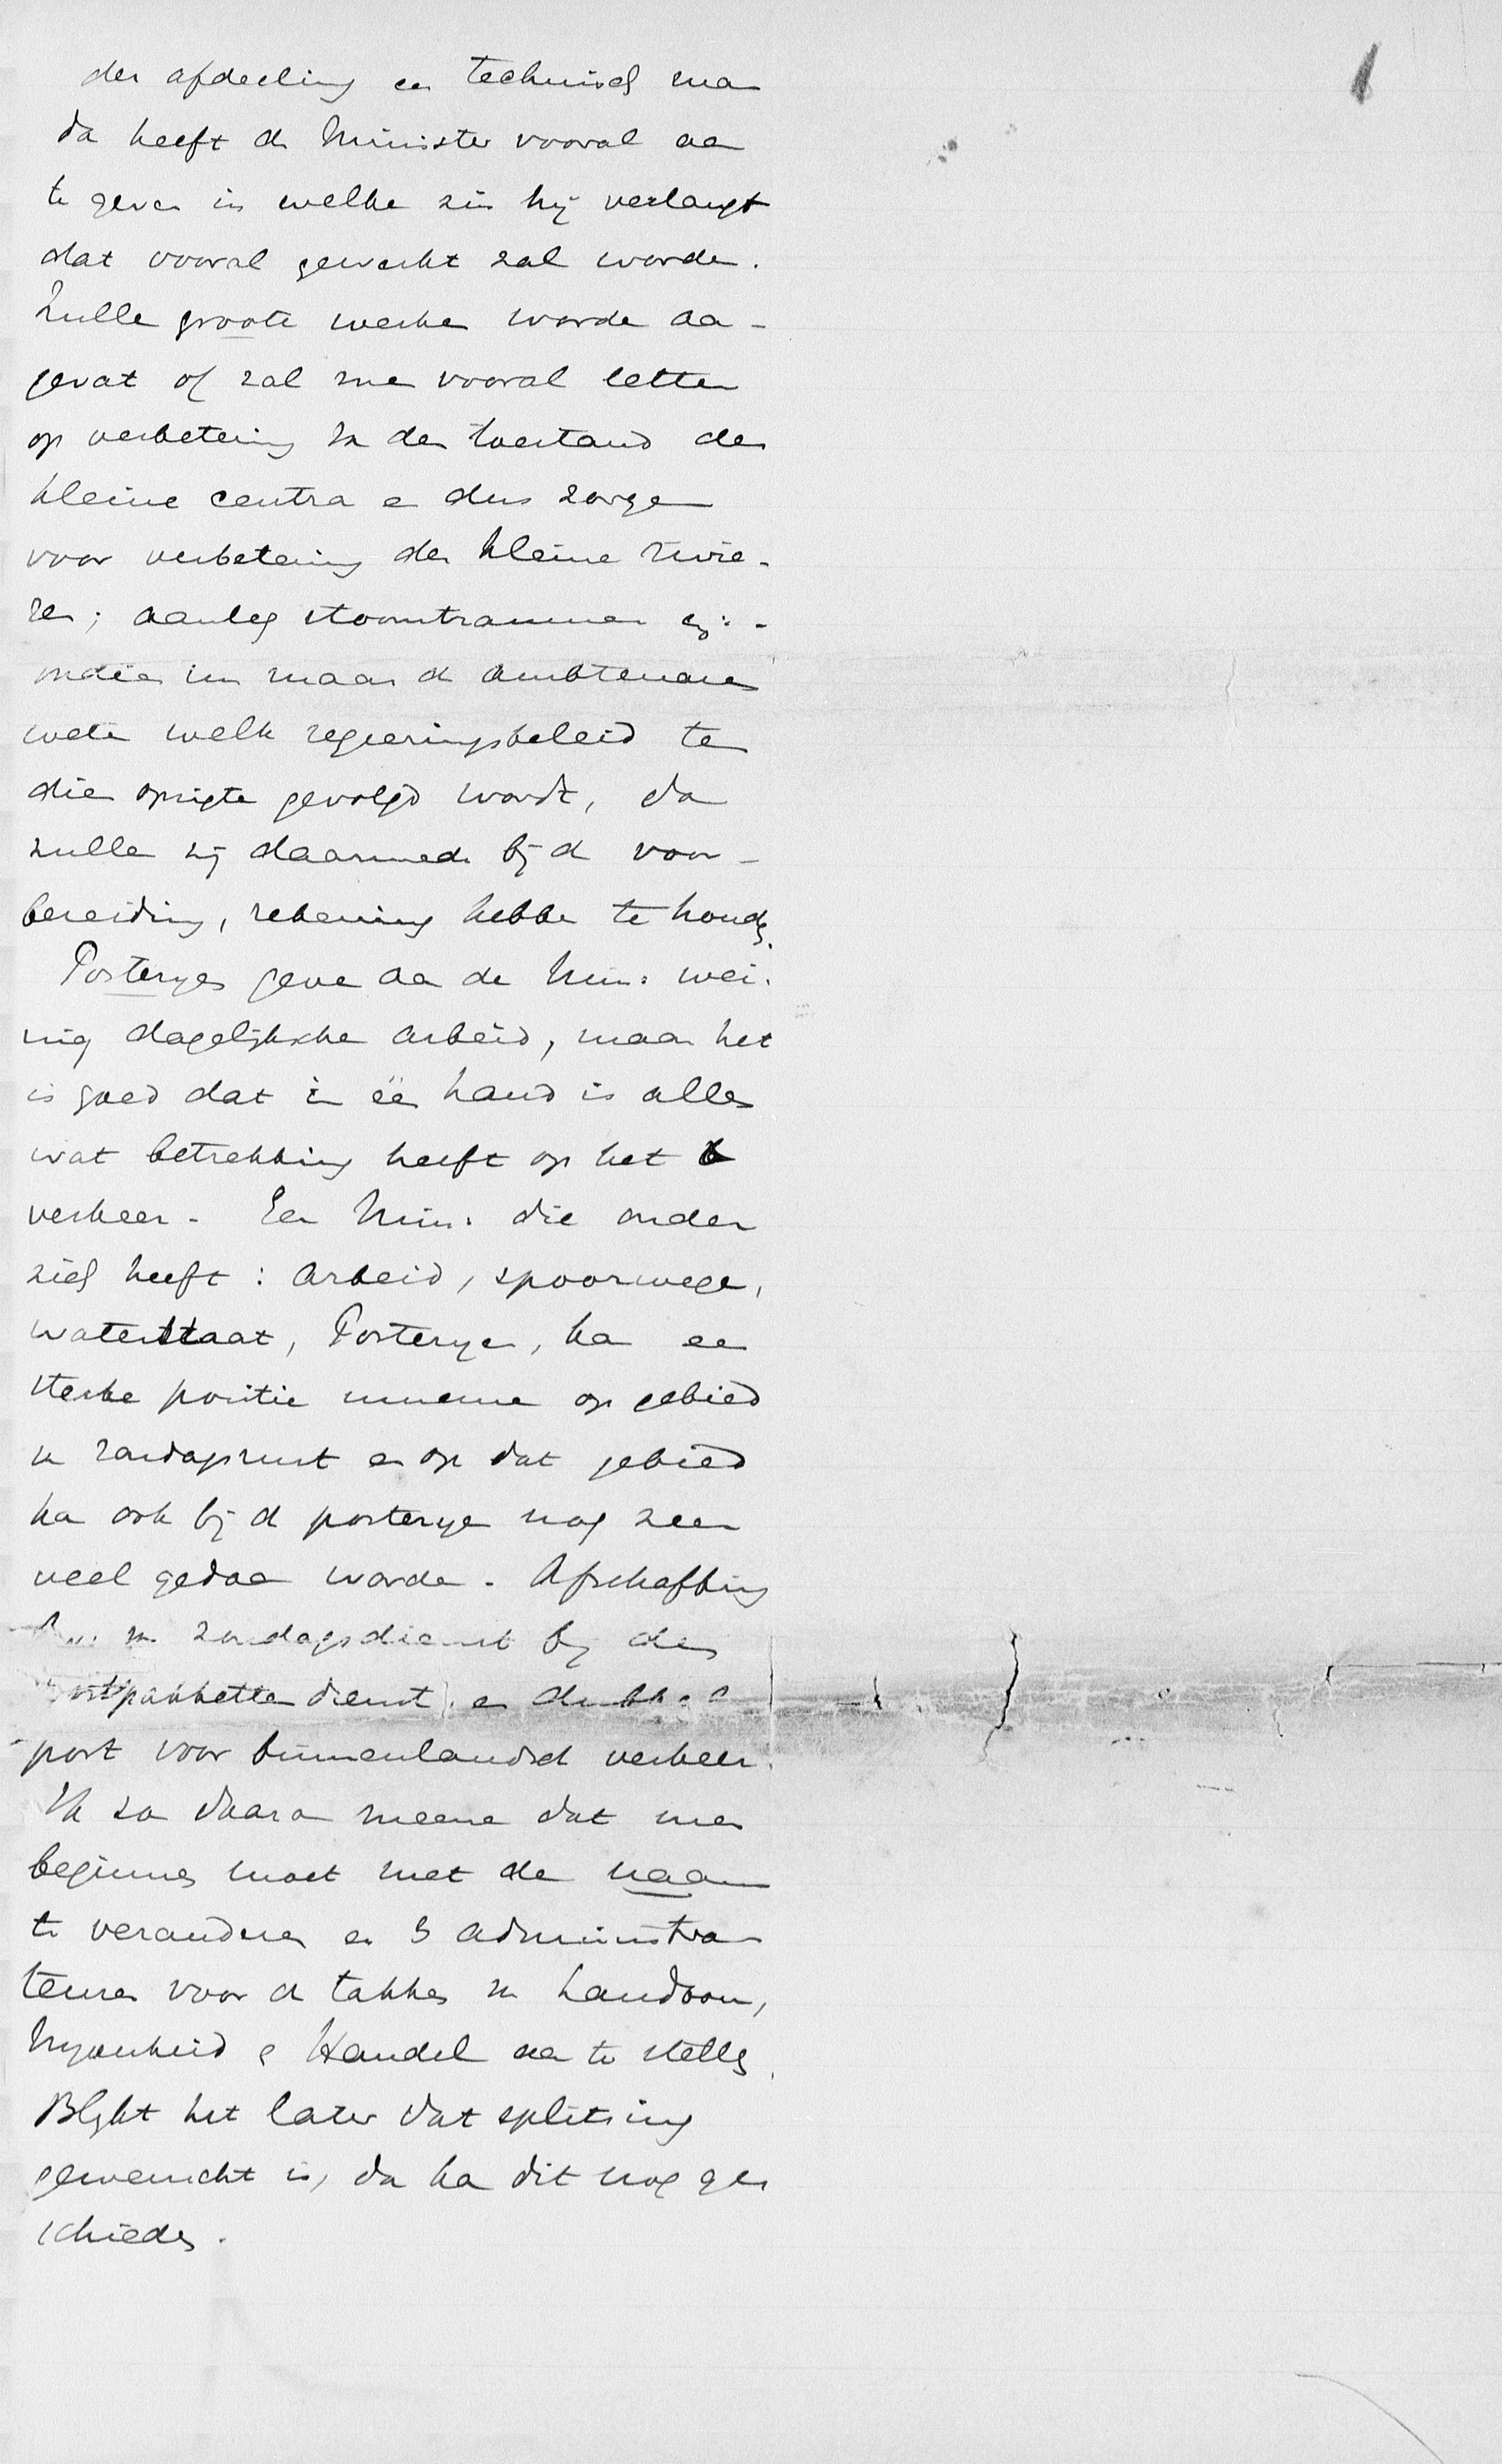 der afdeeling een technisch man
dan heeft de Minister vooral aan
te geven in welke zin hij verlangt
dat vooral gewerkt zal worden.
Zullen groote werken worden aan-
gevat of zal men vooral letten
op verbetering van den toestand der
kleine centra en dus zorgen
voor verbetering der kleine rivie-
ren; aanleg stoomtrammen enz: -
indien nu maar de ambtenaren
weten welk regeeringsbeleid ten
dien opzigte gevolgd wordt, dan
zullen zij daarmede bij de voor-
bereiding, rekening hebben te houden.
Posteryen geven aan den Min: wei-
nig dagelijksche arbeid, maar het
is goed dat in één hand is alles
wat betrekking heeft op het
verkeer. Een Min: die onder
zich heeft: Arbeid, spoorwegen,
waterstaat, Posteryen, kan een
sterke positie innemen op gebied
van zondagsrust en op dat gebied
kan ook bij de posteryen nog zeer
veel gedaan worden. Afschaffing
van zondagsdienst bij den
postpakketten dienst en dubbel
port voor binnenlandsch verkeer.
Ik zou daarom meenen dat men
beginnen moet met den naam
te veranderen en 3 administra-
teuren voor de takken van Landbouw,
Nyverheid en Handel aan te stellen.
Blykt het later dat splitsing
gewenscht is, dan kan dit nog ge-
schieden.